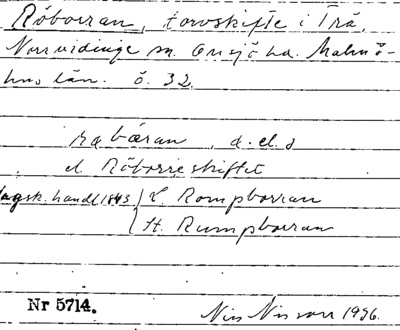 Röborran, torvskifte i Trä,
Norrvidinge sn. Onsjö hd. Malmö-
hus län. ö. 32.
rabøran, d. el. d
el. Röborreskiftet
lagsk. handl 1843 } L. Rompborran
H. Rumpborran
Nr 5714. Nils Nilsson 1936.